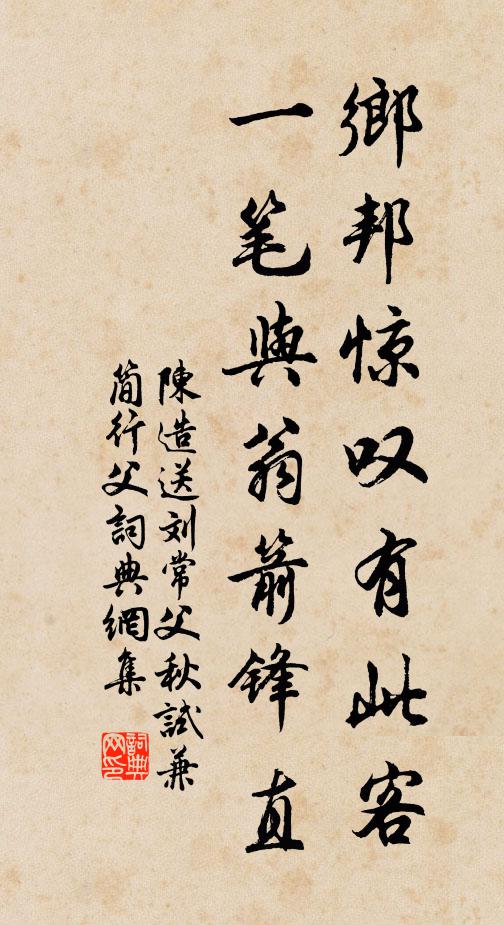 鄉邦惊叹有此客
一笔與翁箭锋直
陳造送刘常父秋試兼
簡行父詞典網集
詞典网印